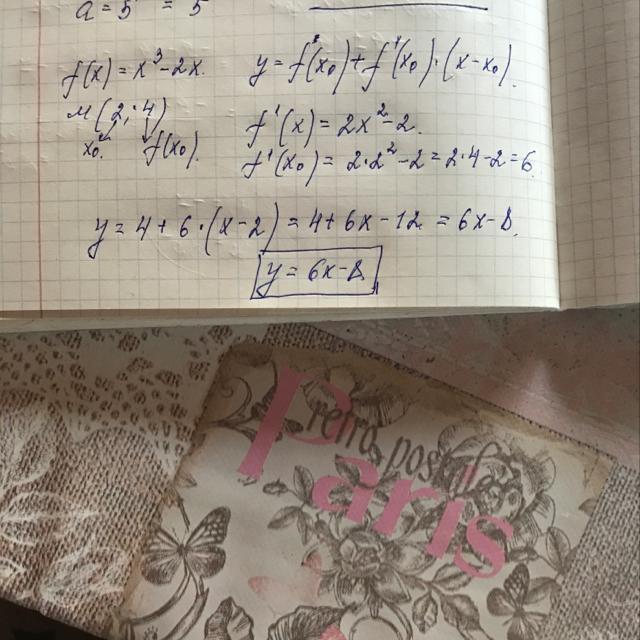 a = 5 = 5
f(x) = x³ - 2x. y = f(x₀) + f'(x₀)·(x - x₀).
M(2; 4)
x₀. f(x₀).
f'(x) = 2x² - 2.
f'(x₀) = 2·2² - 2 = 2·4 - 2 = 6.
y = 4 + 6·(x - 2) = 4 + 6x - 12 = 6x - 8.
y = 6x - 8.
retro postal
Paris